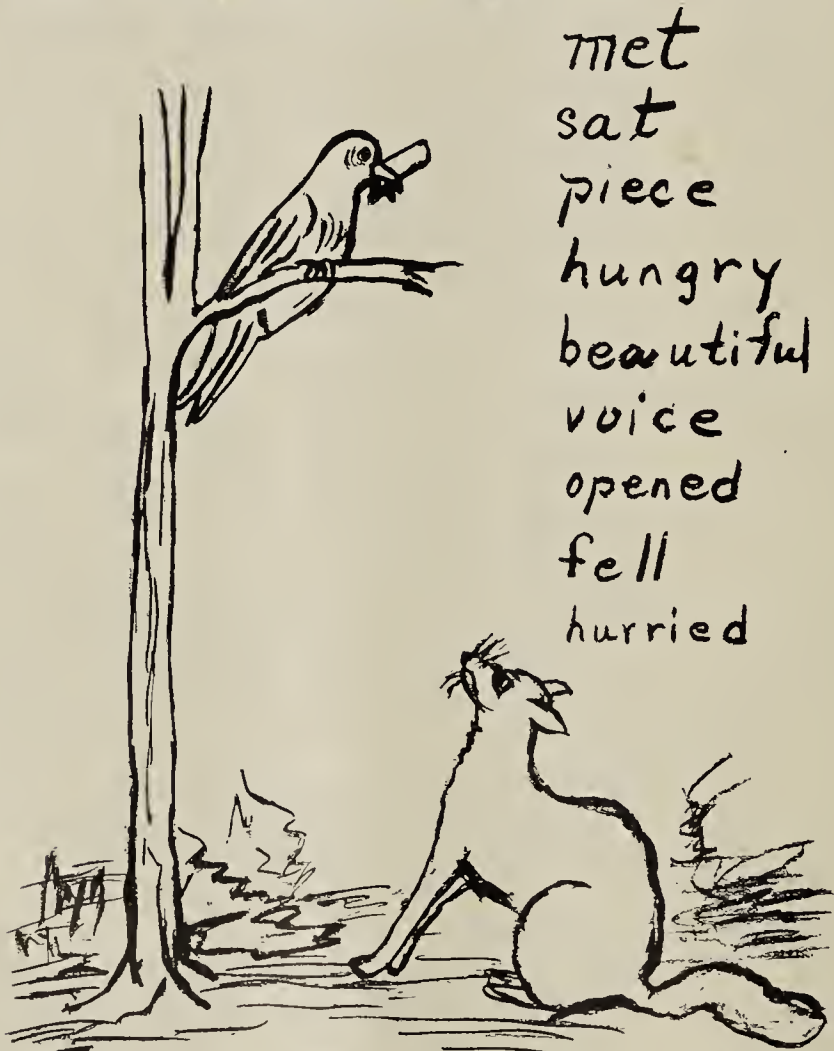 met
sat
piece
hungry
beautiful
voice
opened
fell
hurried